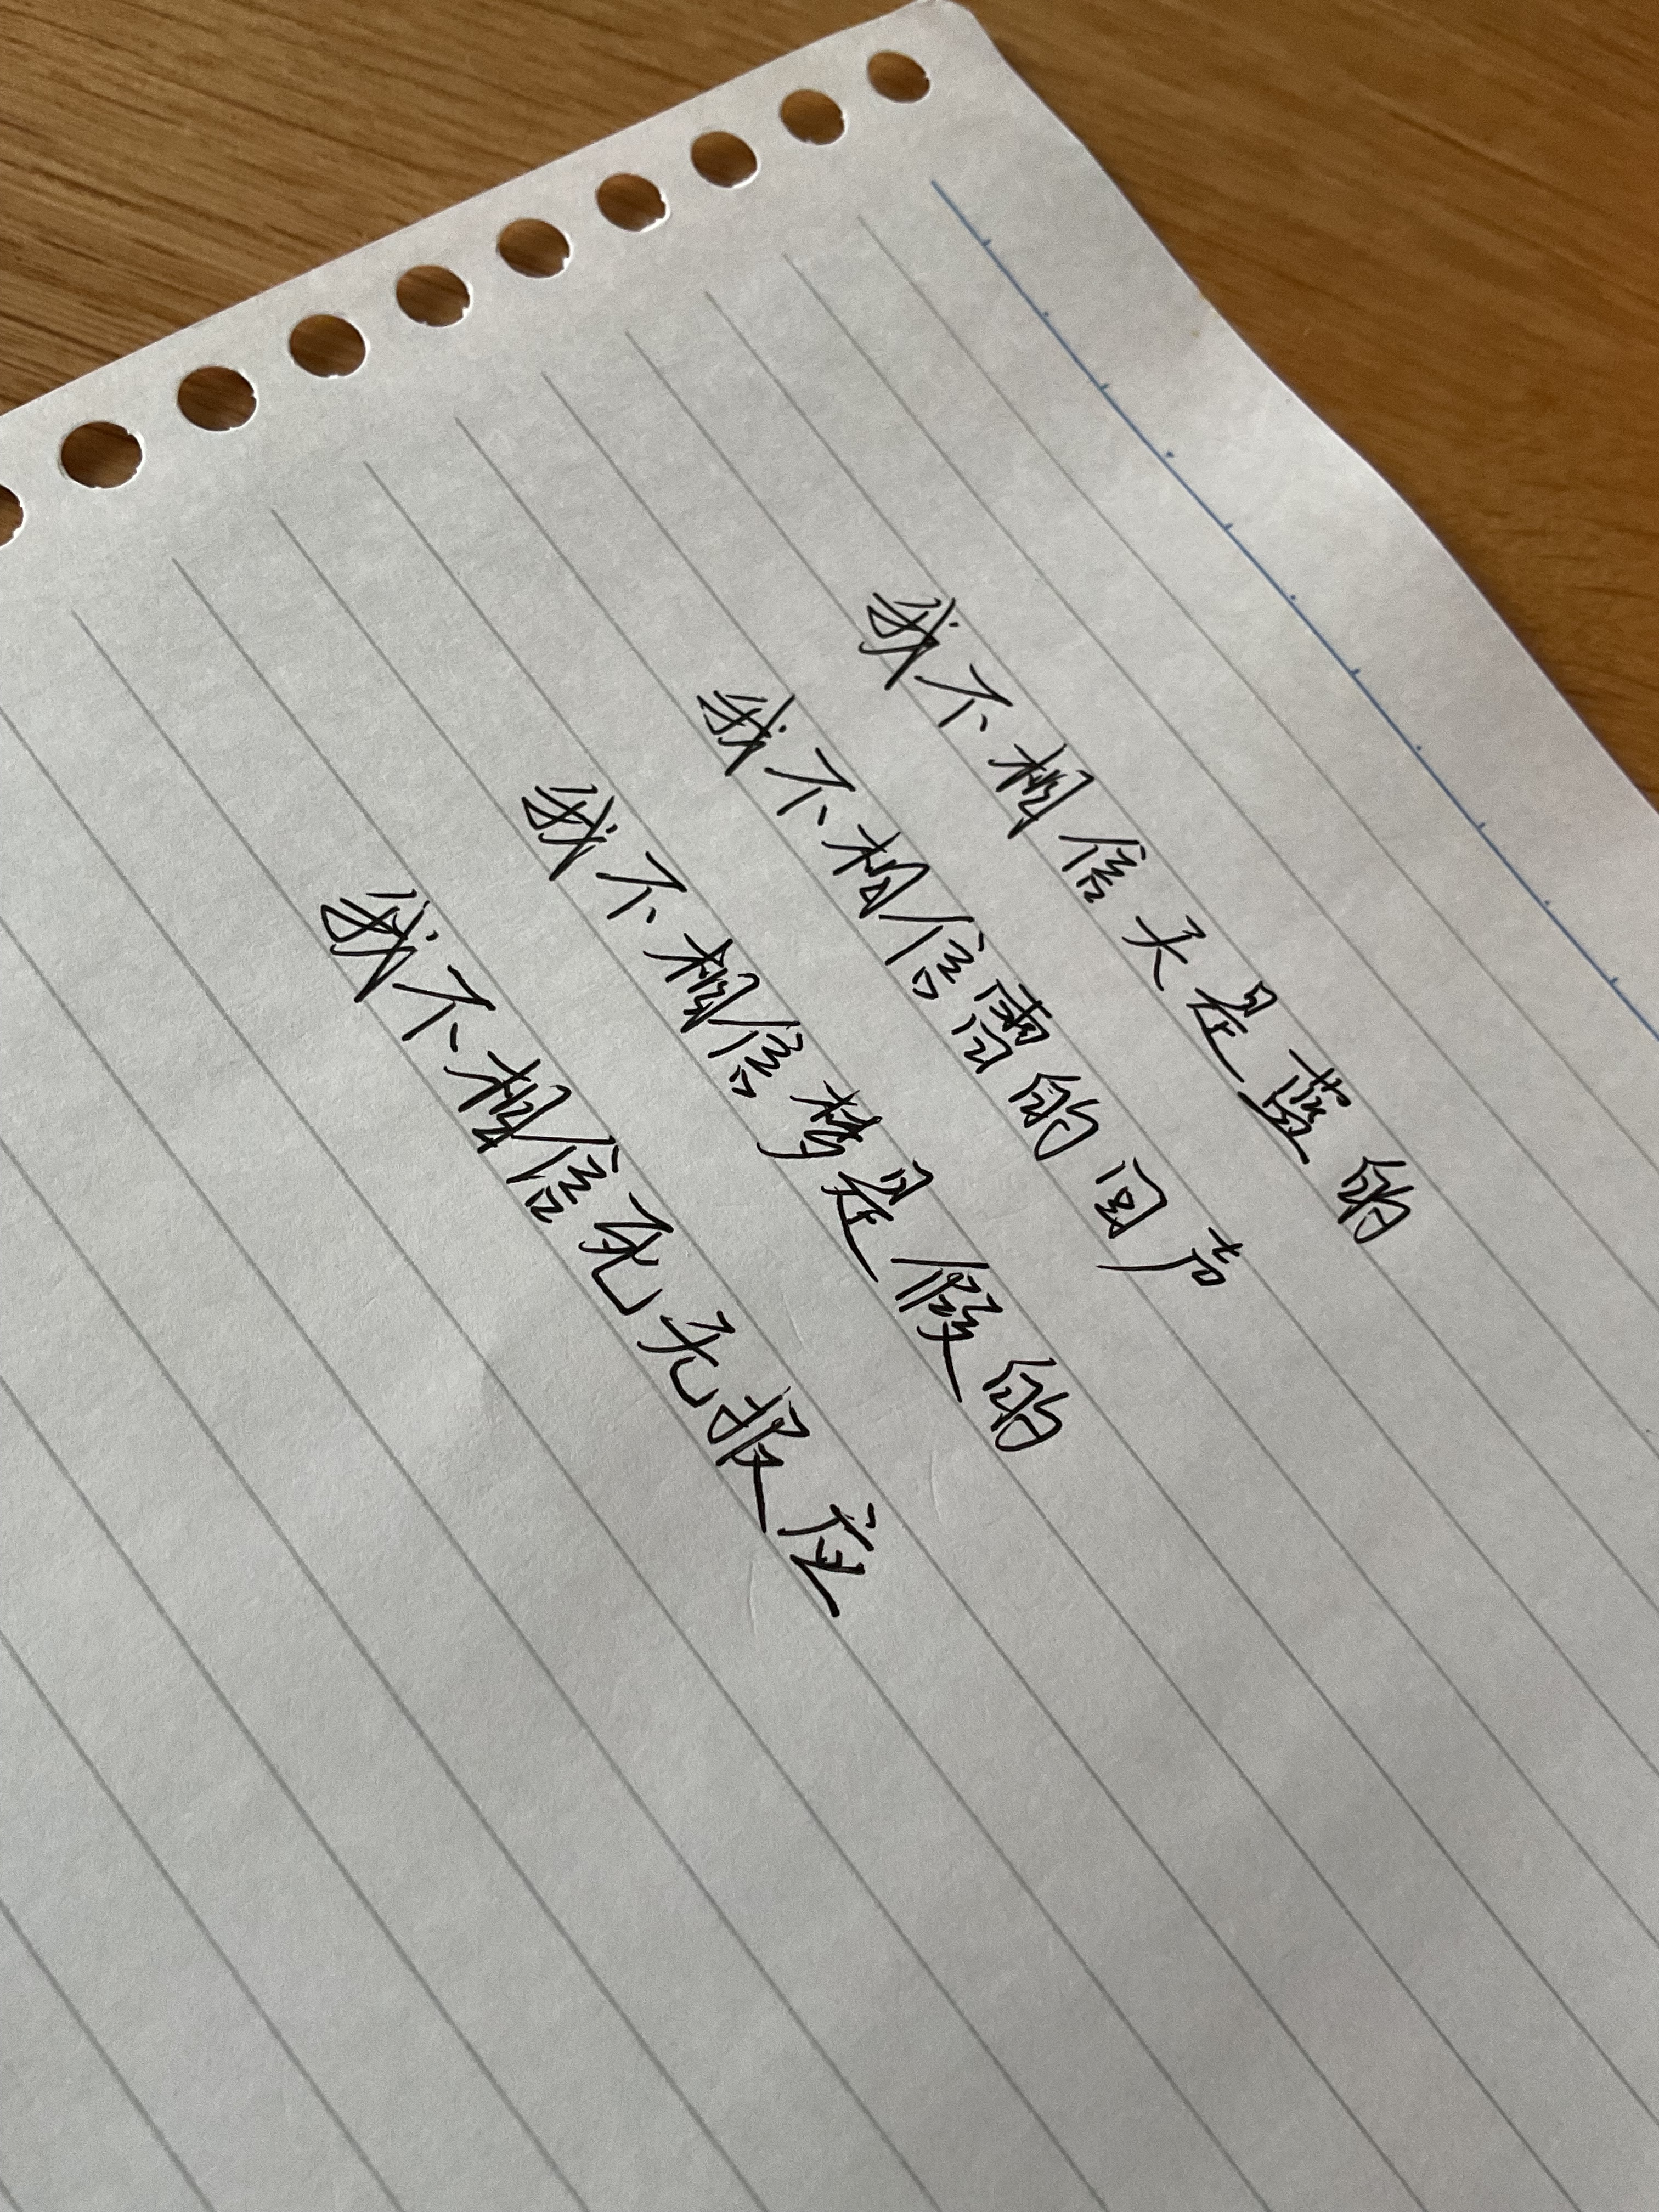 我不相信天是蓝的
我不相信雷的回声
我不相信梦是假的
我不相信死无报应